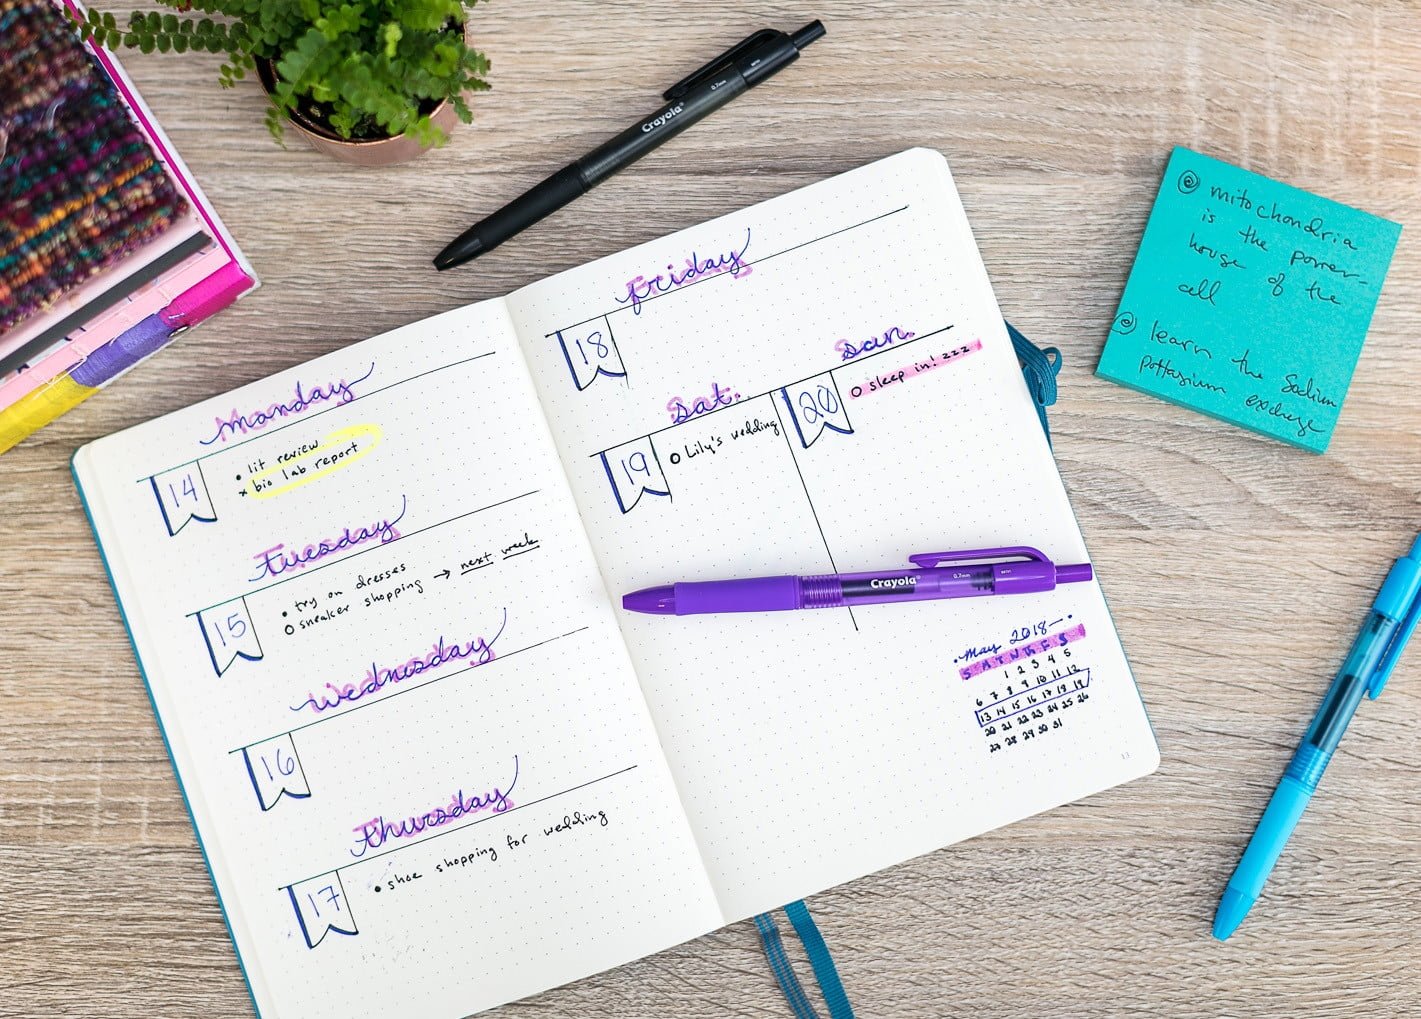 Monday
14
• lit review
x bio lab report
Tuesday
15
• try on dresses
o sneaker shopping → next week
Wednesday
16
Thursday
17
• shoe shopping for wedding
Friday
18
Sat.
19
o Lily's wedding
Sun.
20
o sleep in! zzz
May 2018
S M T W Th F S
1 2 3 4 5
6 7 8 9 10 11 12
13 14 15 16 17 18 19
20 21 22 23 24 25 26
27 28 29 30 31
13
Crayola
0.7mm
Crayola
0.7mm
mitochondria
is the power-
house of the
cell
learn the Sodium
pottasium exchange